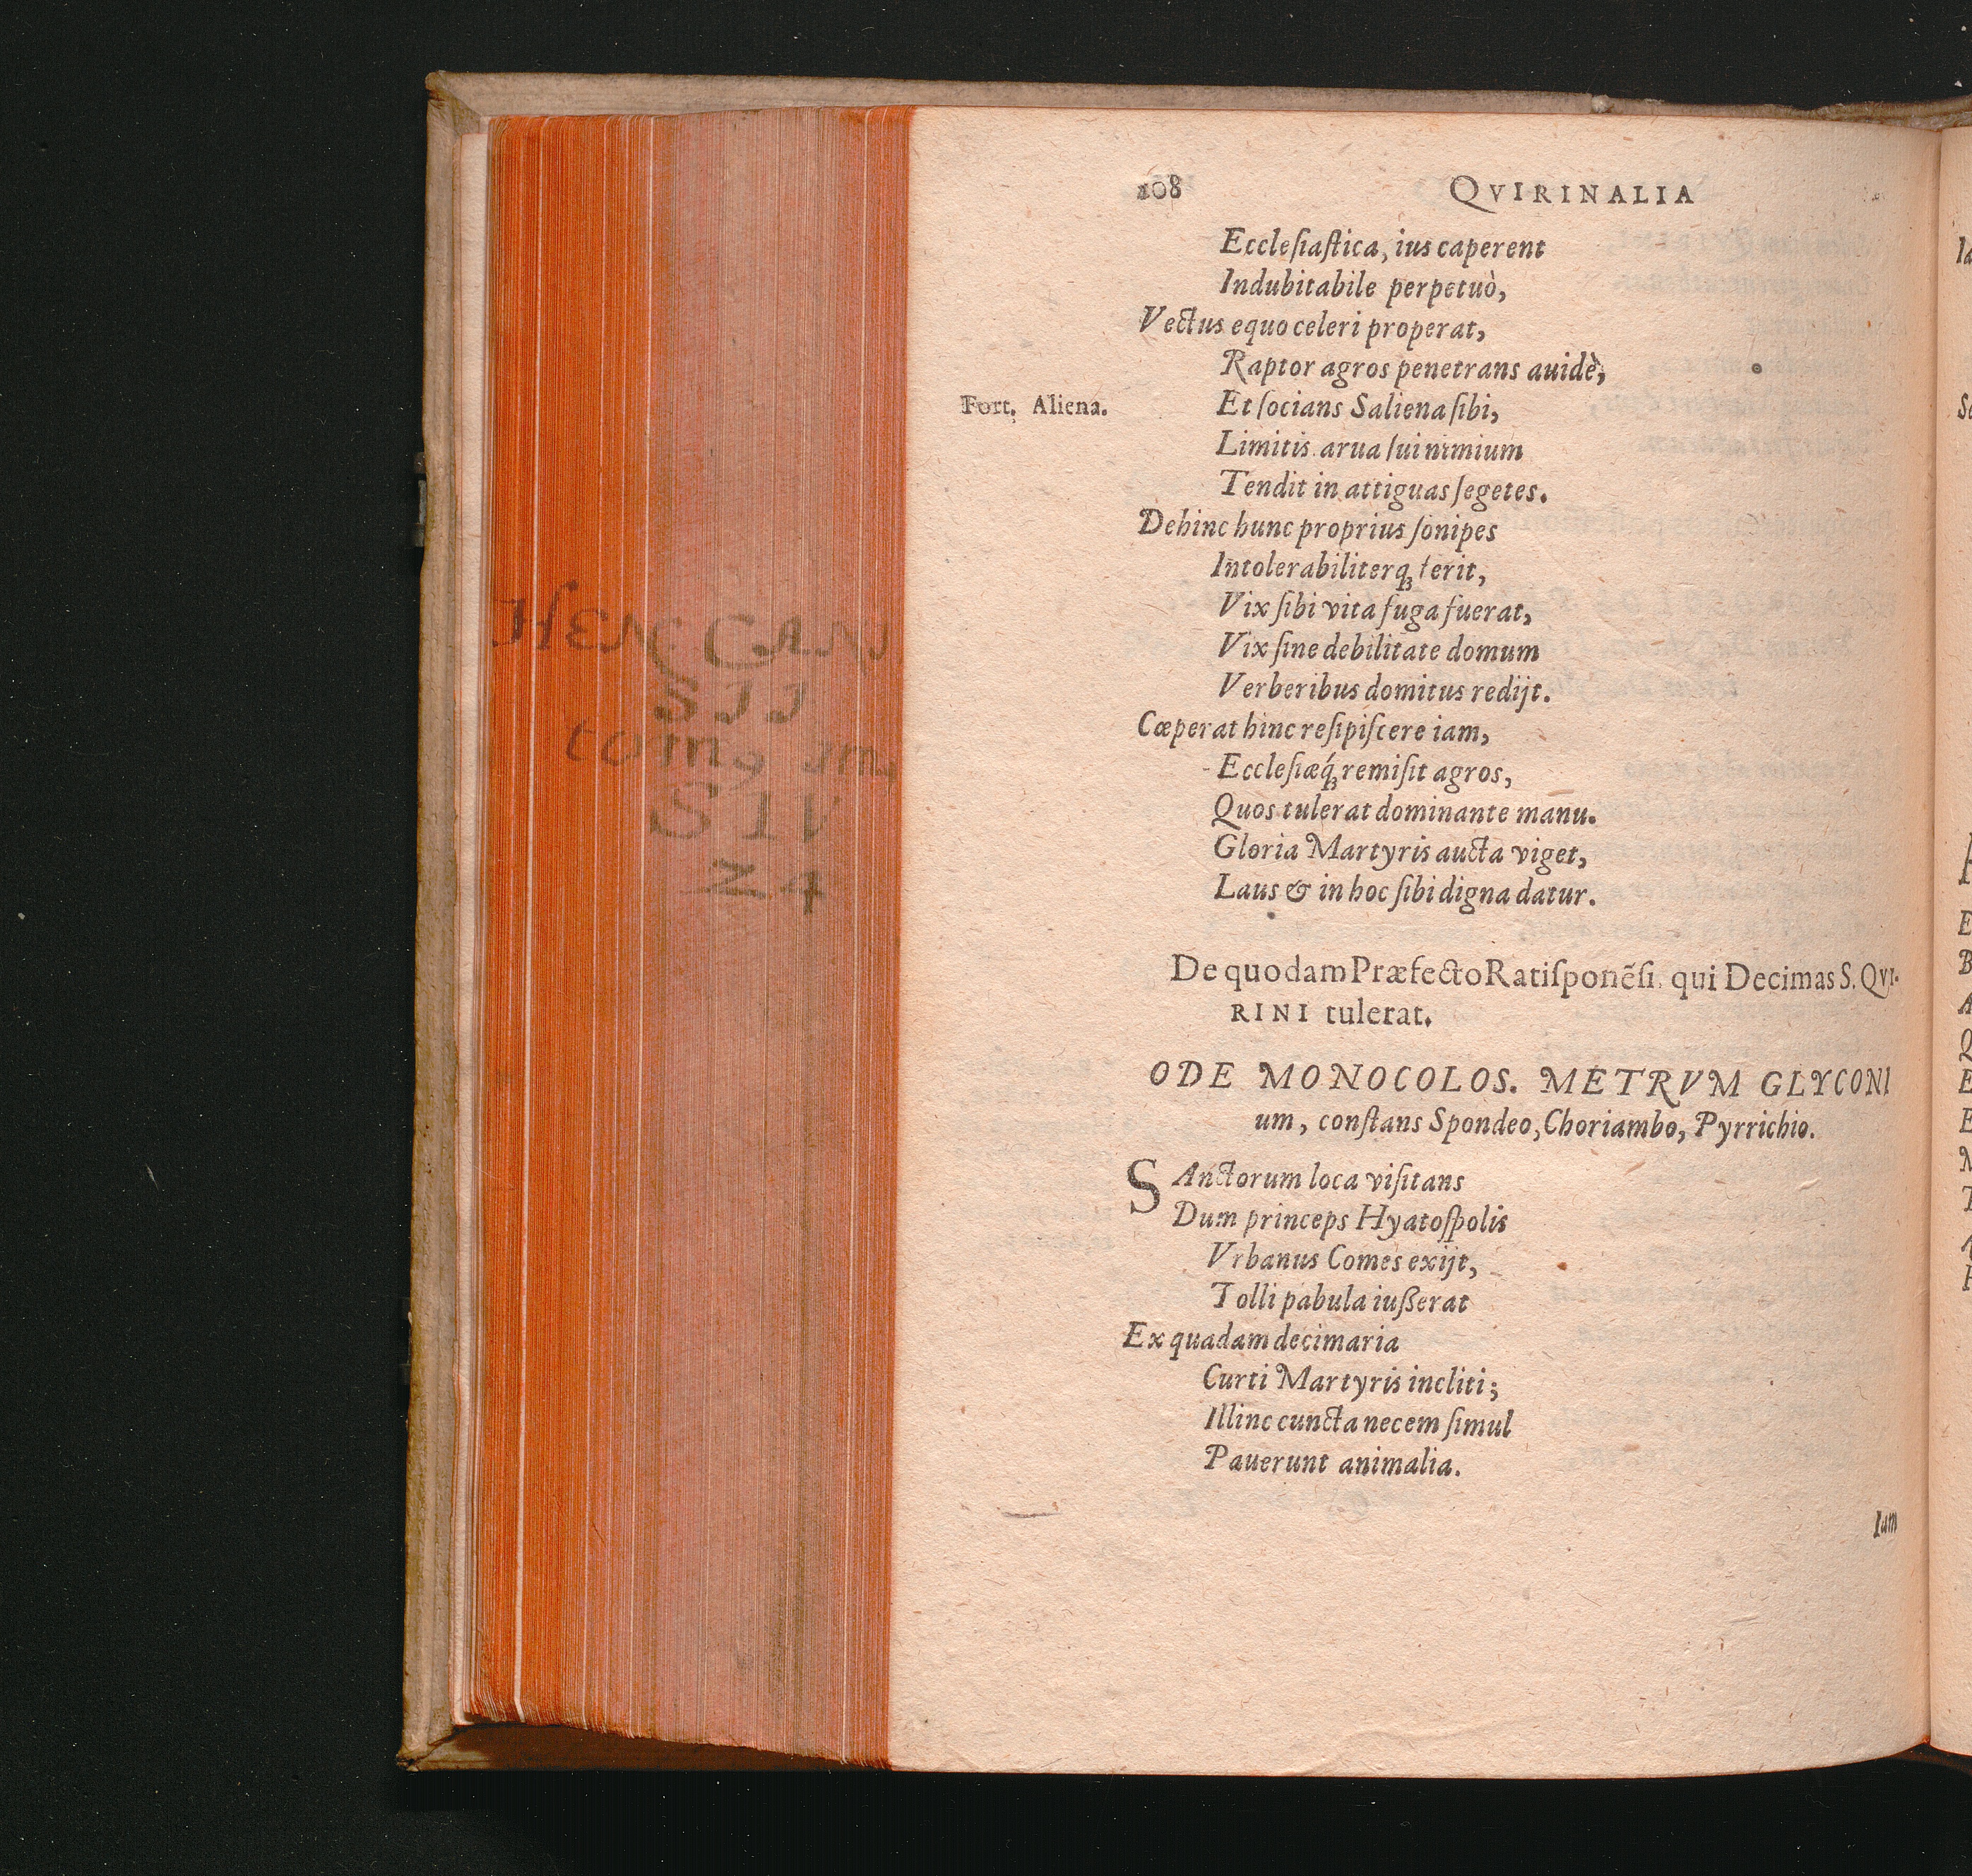 108 QVIRINALIA
Eccleſiaſtica, ius caperent
Indubitabile perpetuò,
Vectus equo celeri properat,
Raptor agros penetrans auidè,
Fort. Aliena.
Et ſocians Saliena ſibi,
Limitis arua ſui nimium
Tendit in attiguas ſegetes.
Dehinc hunc proprius ſonipes
Intolerabiliterq́ꝫ ferit,
Vix ſibi vita fuga fuerat,
Vix ſine debilitate domum
Verberibus domitus redijt.
Cœperat hinc reſipiſcere iam,
Eccleſiæq́ꝫ remiſit agros,
Quos tulerat dominante manu.
Gloria Martyris aucta viget,
Laus & in hoc ſibi digna datur.
De quodam Præfecto Ratiſponẽſi, qui Decimas S. QVI-
RINI tulerat.
ODE MONOCOLOS. METRVM GLYCONI
um, conſtans Spondeo, Choriambo, Pyrrichio.
SAnctorum loca viſitans
Dum princeps Hyatoſpolis
Vrbanus Comes exijt,
Tolli pabula iußerat
Ex quadam decimaria
Curti Martyris incliti;
Illinc cuncta necem ſimul
Pauerunt animalia.
Iam
HEN CAN
SII
tomꝰ
24